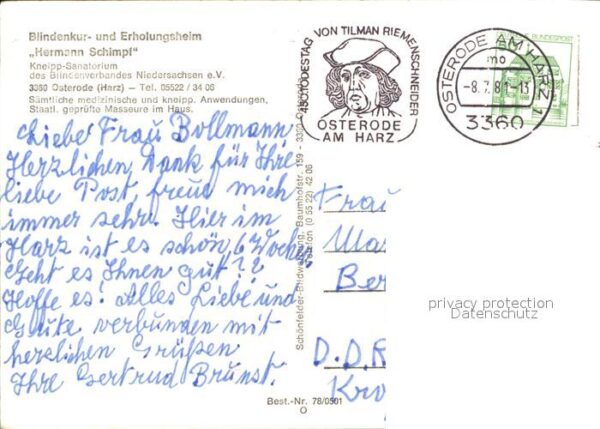 Blindenkur- und Erholungsheim
„Hermann Schimpf"
Kneipp-Sanatorium
des Blindenverbandes Niedersachsen e.V.
3360 Osterode (Harz) – Tel. 05522 / 34 06
Sämtliche medizinische und kneipp. Anwendungen,
Staatl. geprüfte Masseure im Haus.
Liebe Frau Bollmann
Herzlichen Dank für Ihre
liebe Post, freue mich
immer sehr. Hier im
Harz ist es schön, 6 Wochen
Geht es Ihnen gut??
Hoffe es! Alles Liebe und
Gute verbunden mit
herzlichen Grüßen
Ihre Gertrud Brunst.
Best.-Nr. 78/0501
Schönfelder-Bildwerbung, Baumhofstr. 159 - 3360
Telefon (0 55 22) 42 06
450. TODESTAG VON TILMAN RIEMENSCHNEIDER
OSTERODE
AM HARZ
OSTERODE AM HARZ 1
mo
-8.7.81-13
3360
DEUTSCHE BUNDESPOST
Frau
Ber
D.D.R
Kro
privacy protection
Datenschutz